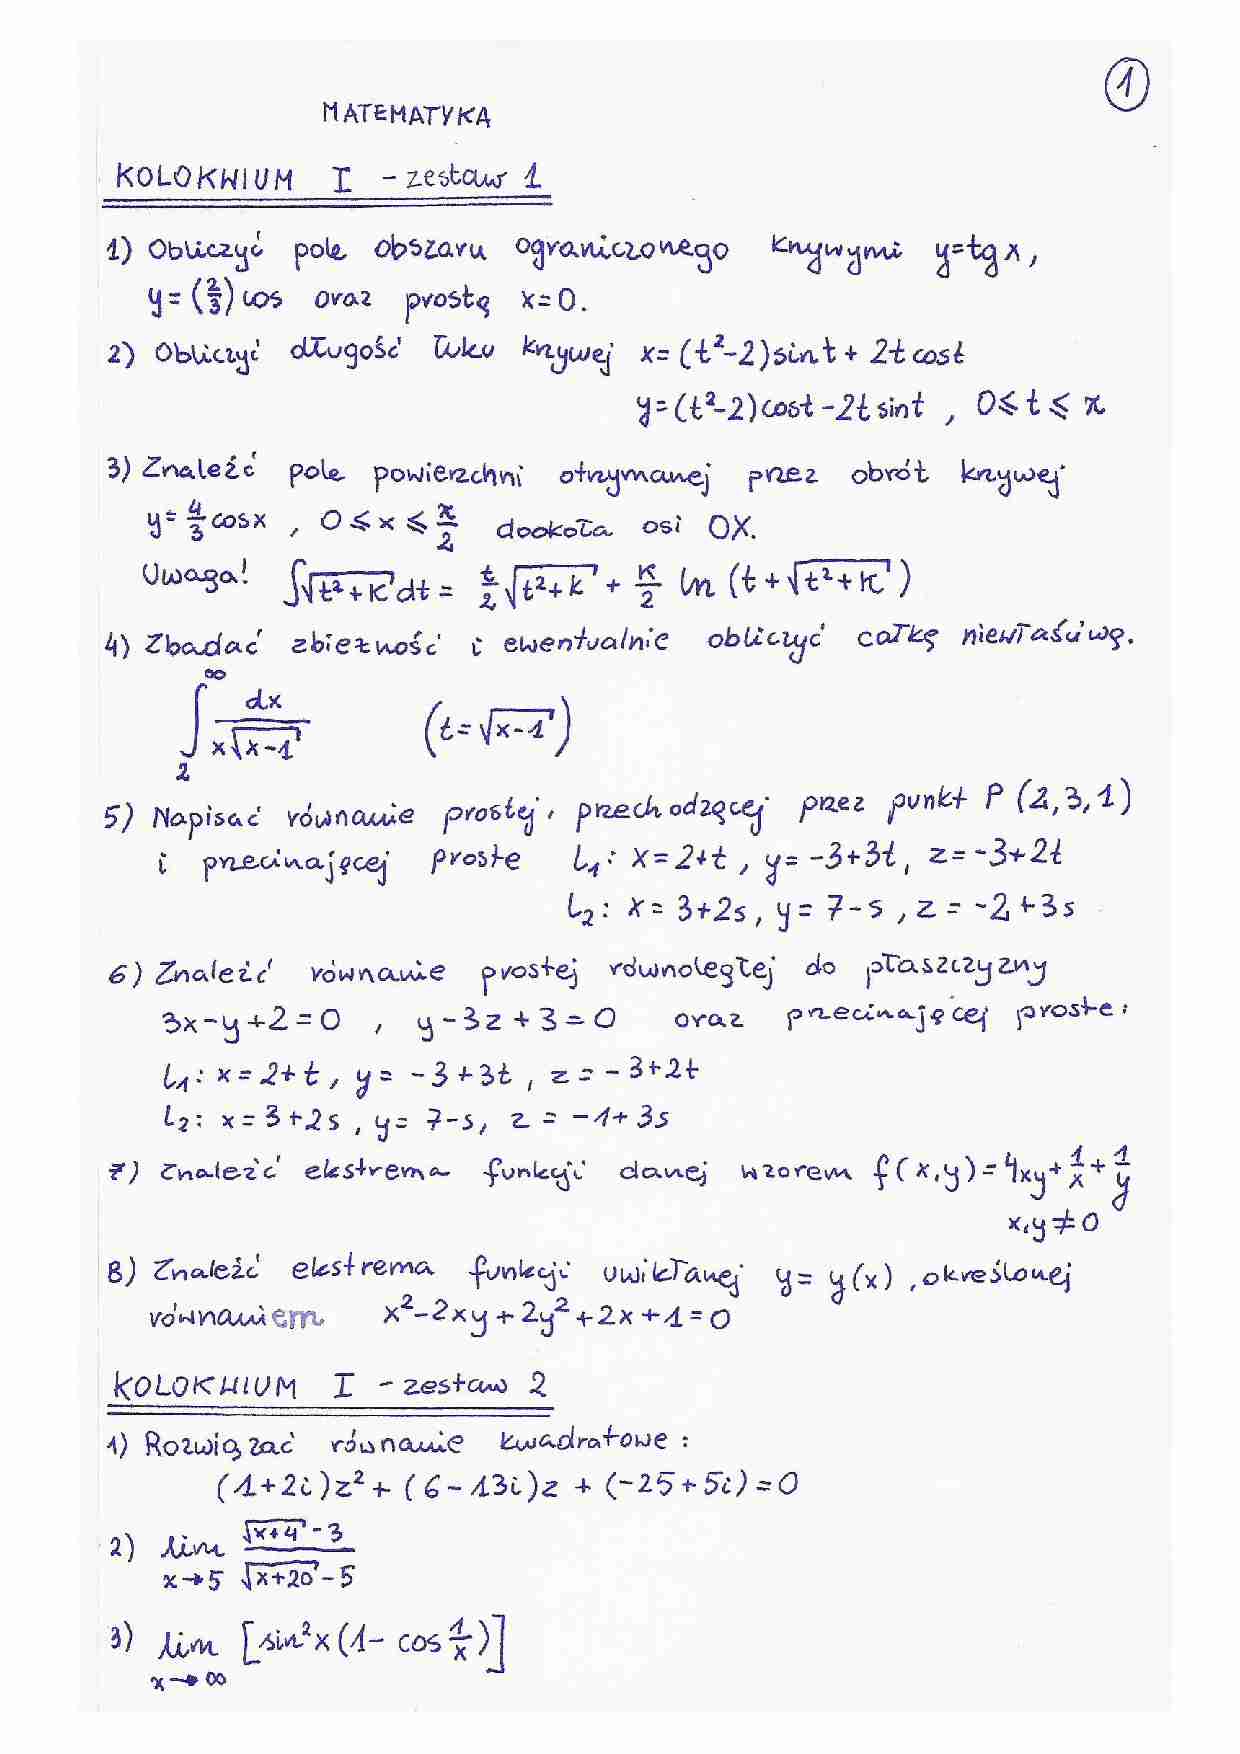 1
MATEMATYKA
KOLOKWIUM I - zestaw 1
1) Obliczyć pole obszaru ograniczonego krzywymi y=tg x,
y=(2/3) cos oraz prostą x=0.
2) Obliczyć długość łuku krzywej x=(t²-2)sint + 2t cost
y=(t²-2)cost-2t sint , 0≤t≤π
3) Znaleźć pole powierzchni otrzymanej przez obrót krzywej
y=4/3 cosx , 0≤x≤π/2 dookoła osi OX.
Uwaga! ∫√(t²+k) dt = t/2 √(t²+k) + k/2 ln (t+√(t²+k))
4) Zbadać zbieżność i ewentualnie obliczyć całkę niewłaściwą.
∫₂^∞ dx/(x√(x-1)) (t=√(x-1))
5) Napisać równanie prostej, przechodzącej przez punkt P (2,3,1)
i przecinającej proste L₁: x=2+t, y=-3+3t, z=-3+2t
L₂: x=3+2s, y=7-s, z=-2+3s
6) Znaleźć równanie prostej równoległej do płaszczyzny
3x-y+2=0 , y-3z+3=0 oraz przecinającej proste:
L₁: x=2+t, y=-3+3t, z=-3+2t
L₂: x=3+2s, y=7-s, z=-1+3s
7) Znaleźć ekstrema funkcji danej wzorem f(x,y)=4xy+1/x+1/y
x,y≠0
8) Znaleźć ekstrema funkcji uwikłanej y=y(x), określonej
równaniem x²-2xy+2y²+2x+1=0
KOLOKWIUM I - zestaw 2
1) Rozwiązać równanie kwadratowe:
(1+2i)z²+(6-13i)z+(-25+5i)=0
2) lim x→5 (√(x+4)-3)/(√(x+20)-5)
3) lim x→∞ [sin²x(1-cos 1/x)]